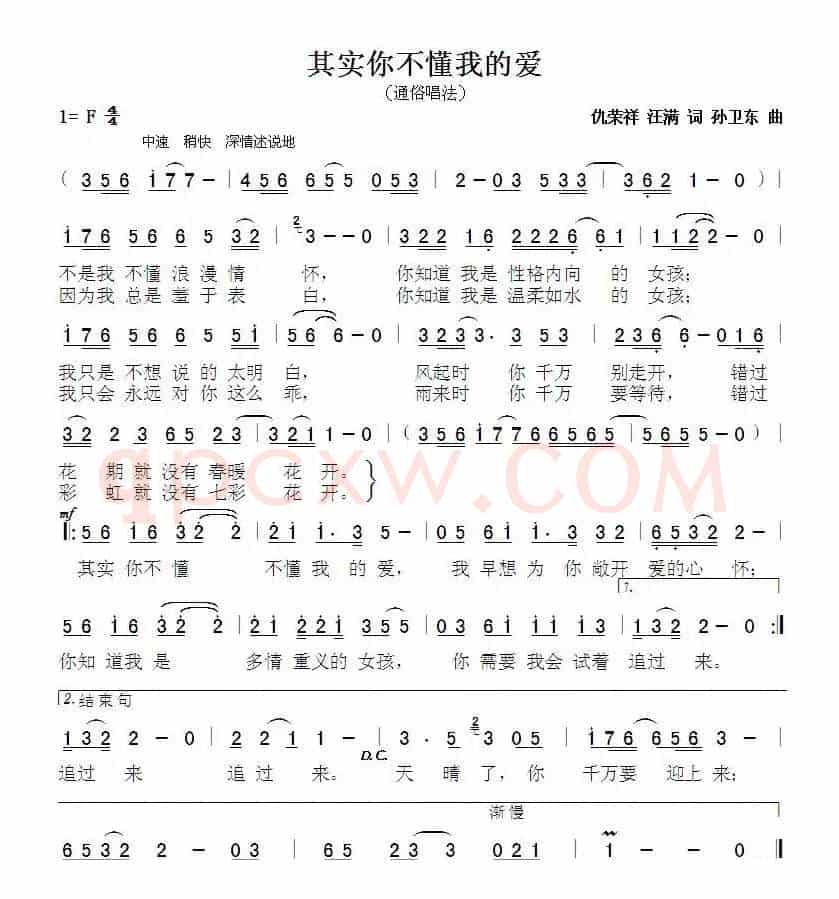 其实你不懂我的爱
（通俗唱法）
1= F 4/4
仇荣祥 汪满 词 孙卫东 曲
中速 稍快 深情述说地
( 356 i77- | 456 655 053 | 2-03 533 | 362 1-0 ) |
i76 56 6 5 32 | 2 3--0 | 322 16 2226 61 | 1122-0 |
不是我 不懂 浪 漫 情 怀， 你知道 我是 性格内向 的 女孩；
因为我 总是 羞 于 表 白， 你知道 我是 温柔如水 的 女孩；
i76 56 6 5 5i | 56 6-0 | 323 3. 3 53 | 236 6-016 |
我只是 不想 说 的 太明 白， 风起时 你 千万 别走开， 错过
我只会 永远 对 你 这么 乖， 雨来时 你 千万 要等待， 错过
32 2 3 65 23 | 321 1-0 | ( 356i7766565 | 5655-0 ) |
花 期 就 没有 春暖 花 开。
彩 虹 就 没有 七彩 花 开。
qpcxw.COM
mf
|: 56 i6 32 2 | 2i i. 3 5- | 05 6i i. 3 32 | 6532 2- |
其实 你不 懂 不懂 我 的 爱， 我 早想 为 你 敞开 爱的心 怀；
1.
56 i6 32 2 | 2i 22i 355 | 03 6i iii i3 | 132 2-0 :|
你知 道我 是 多情 重义的 女孩， 你 需要 我会 试着 追过 来。
2. 结束句
132 2-0 | 221 1- | 3. 5 2 3 05 | i76 6563 |
追过 来 追过 来。 天 晴 了， 你 千万要 迎上 来；
D.C.
渐慢
6532 2-03 | 65 23 3 021 | 1--0 |